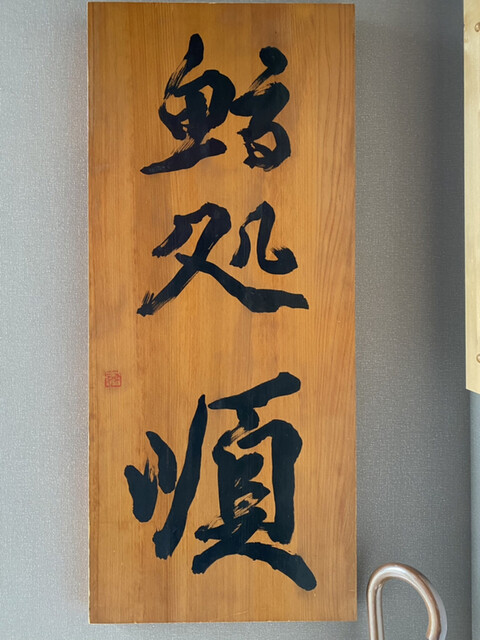 鮨処順